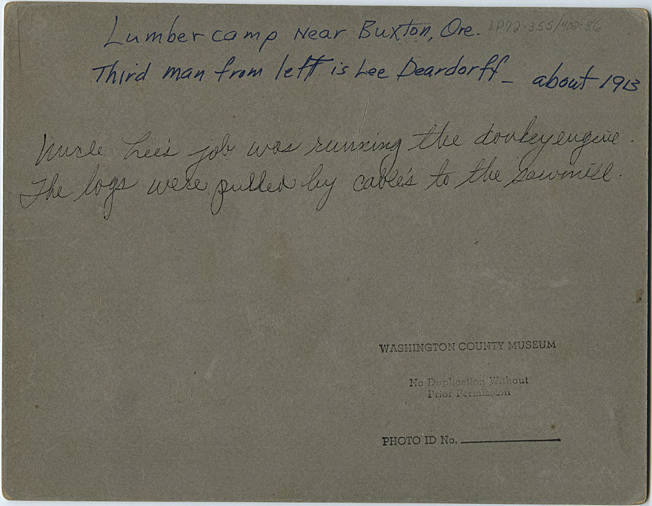 Lumber camp Near Buxton, Ore.
Third man from left is Lee Deardorff - about 1913
Uncle Lee's job was running the donkey engine.
The logs were pulled by cables to the sawmill.
WASHINGTON COUNTY MUSEUM
No Duplication Without
Prior Permission
PHOTO ID No.